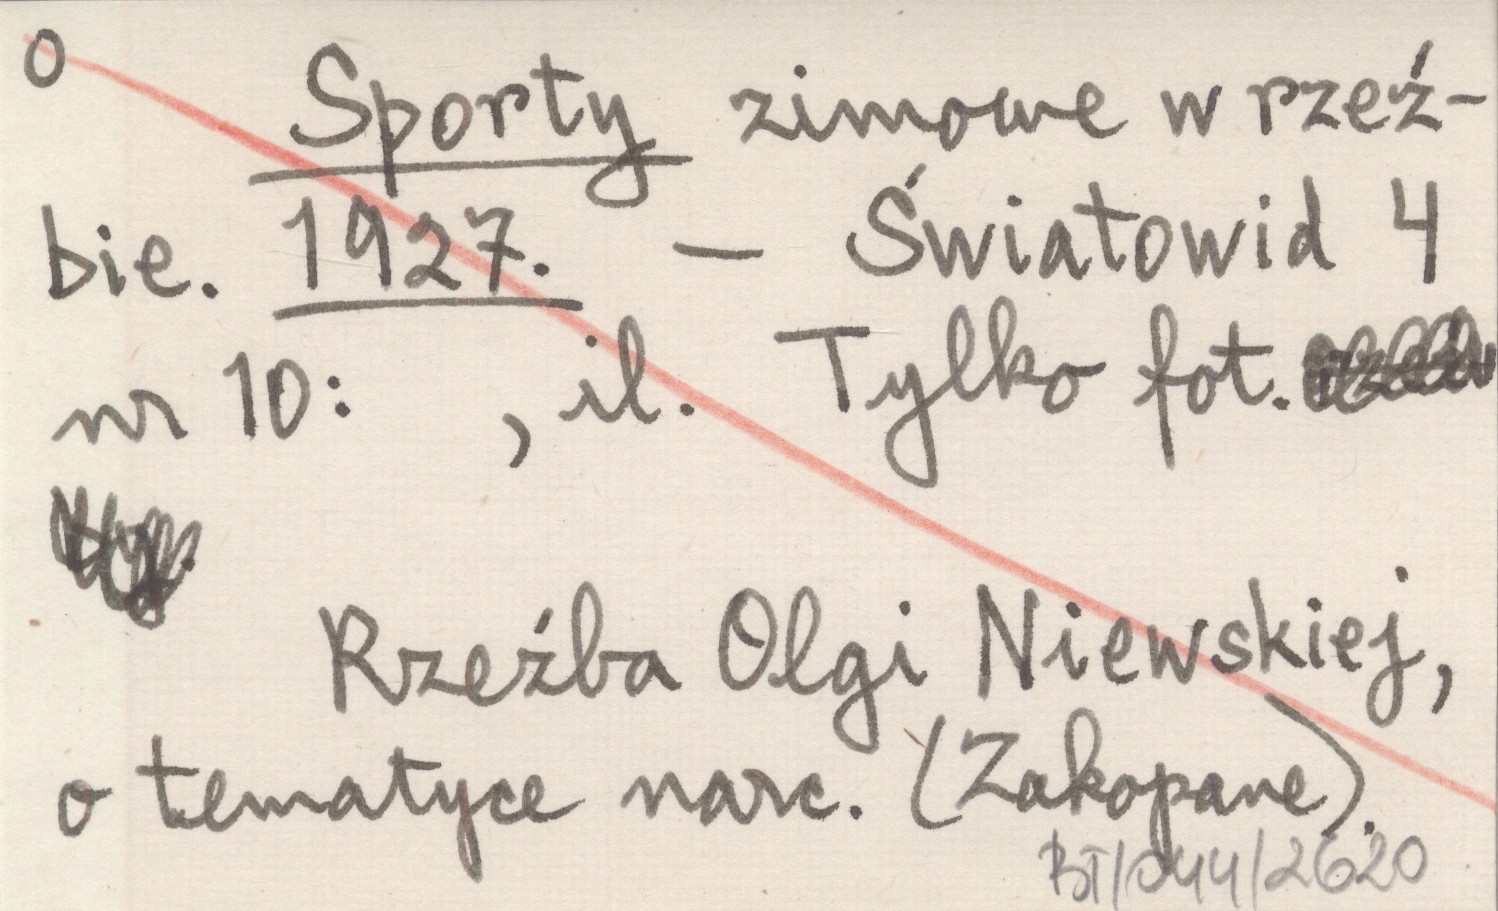 o Sporty zimowe w rzeź-
bie. 1927. — Światowid 4
nr 10: , il. Tylko fot.
Rzeźba Olgi Niewskiej,
o tematyce narc. (Zakopane).
BT/044/2620